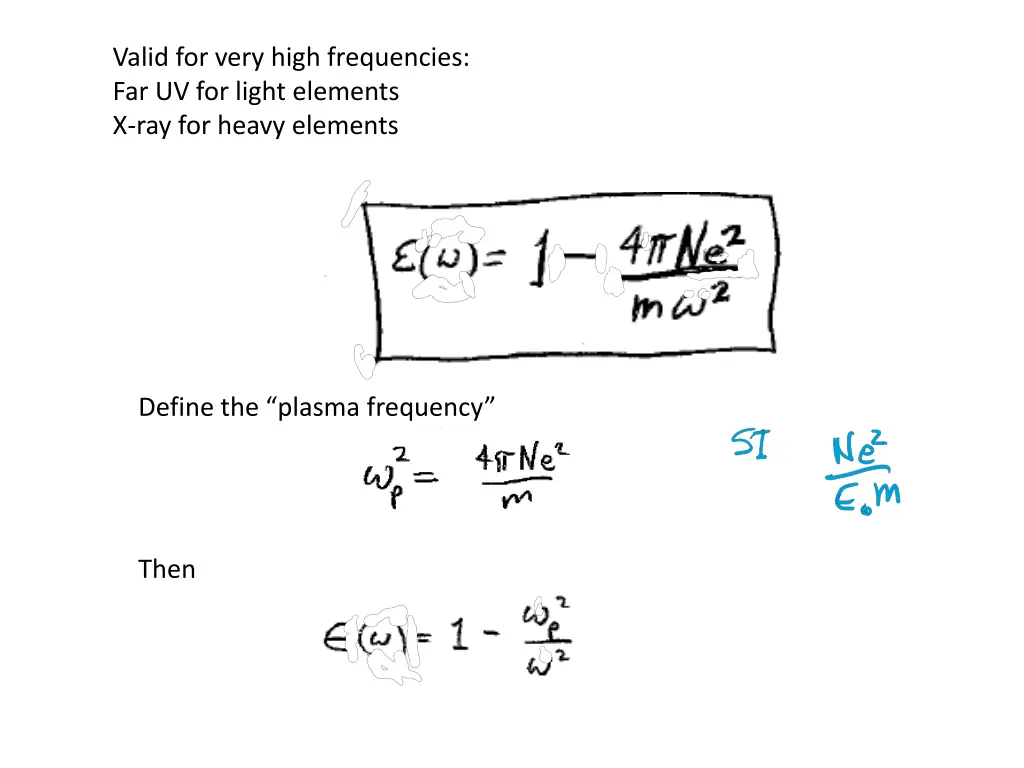 Valid for very high frequencies:
Far UV for light elements
X-ray for heavy elements
ε(ω) = 1 − 4πNe² / mω²
Define the “plasma frequency”
ωₚ² = 4πNe² / m
SI Ne² / ϵ₀m
Then
ϵ(ω) = 1 - ωₚ² / ω²